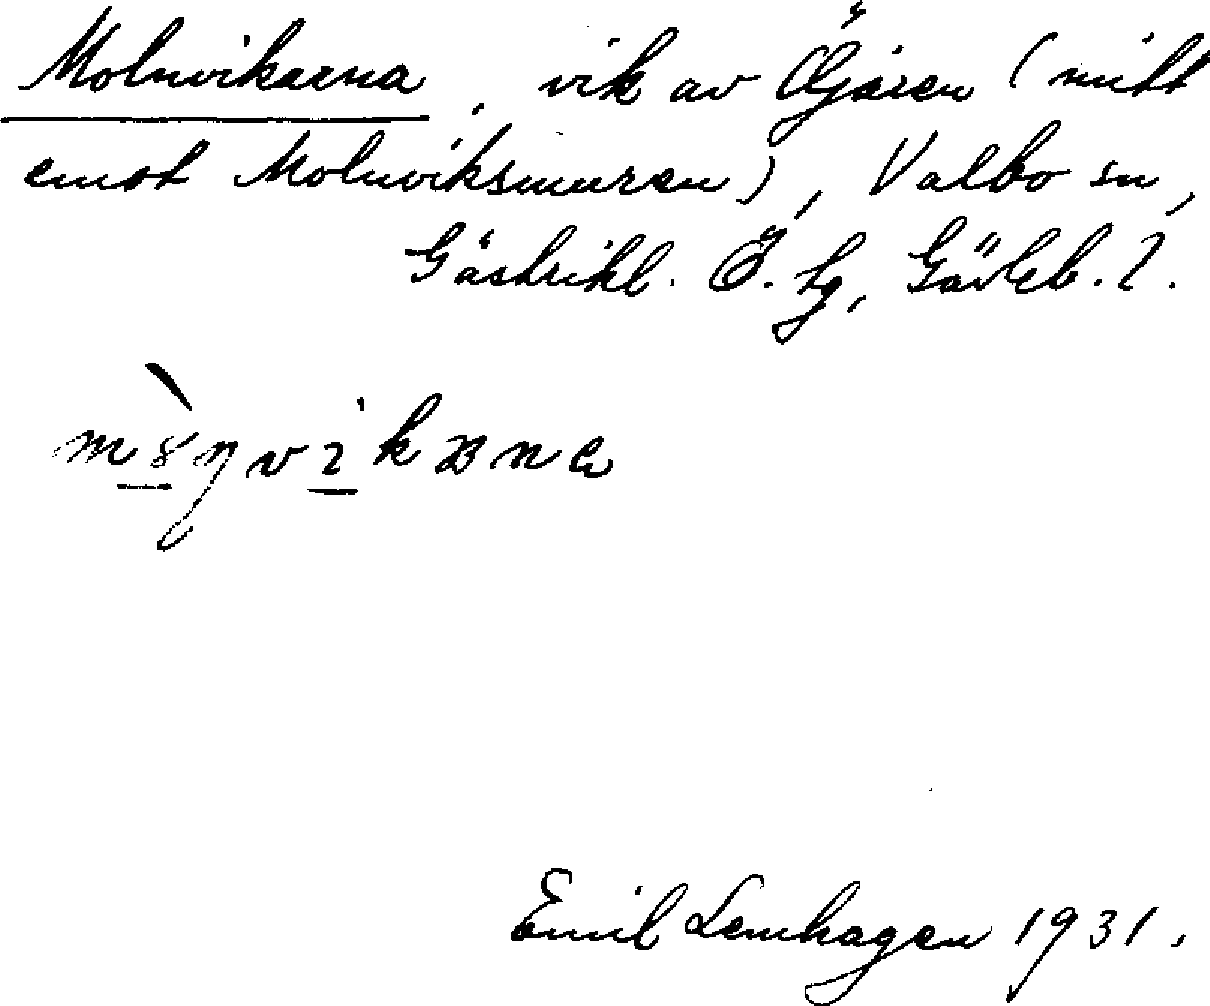 Molnvikarna, vik av Öjaren (mitt
emot Molnviksmuren), Valbo sn,
Gästrikl. Ö. tg, Gävleb. l.
Emil Lemhagen 1931.